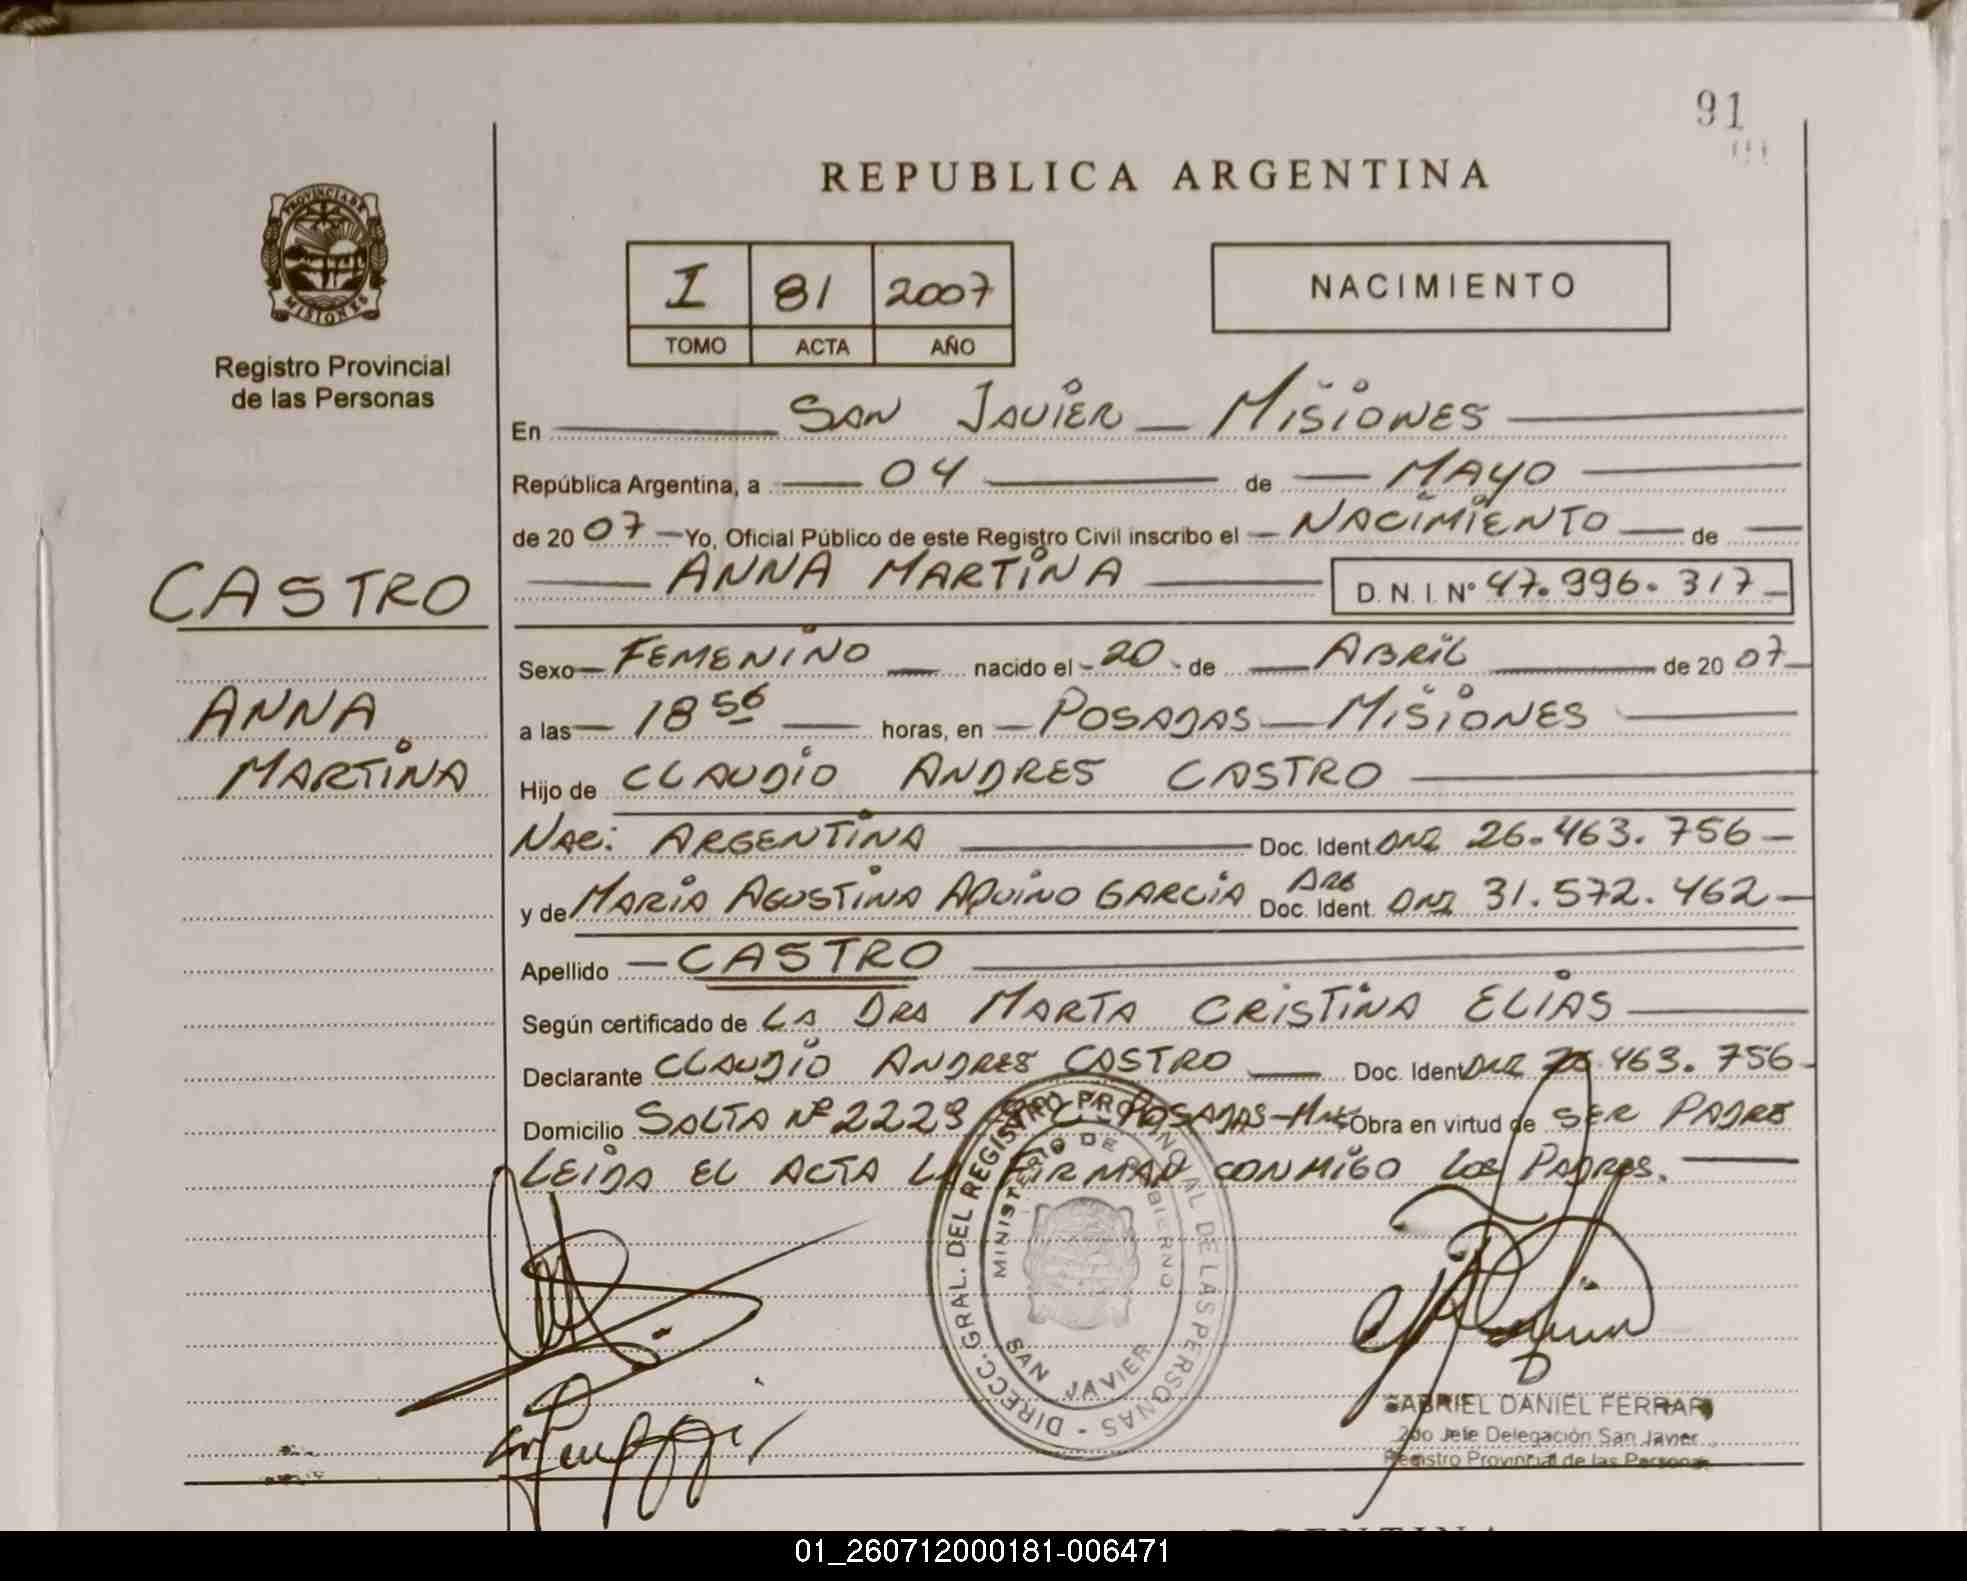 91
REPUBLICA ARGENTINA
PROVINCIA DE MISIONES
Registro Provincial
de las Personas
I 81 2007
TOMO ACTA AÑO
NACIMIENTO
En SAN JAVIER - MISIONES
República Argentina, a 04 de MAYO
de 2007 Yo, Oficial Público de este Registro Civil inscribo el NACIMIENTO de
ANNA MARTINA D. N. I. N° 47.996.317
CASTRO
Sexo FEMENINO nacido el 20 de ABRIL de 2007
ANNA
MARTINA
a las 18 56 horas, en POSADAS - MISIONES
Hijo de CLAUDIO ANDRES CASTRO
NAC: ARGENTINA Doc. Ident. DNI 26.463.756
y de MARIA AGUSTINA AQUINO GARCIA ARG Doc. Ident. DNI 31.572.462
Apellido CASTRO
Según certificado de LA DRA MARTA CRISTINA ELIAS
Declarante CLAUDIO ANDRES CASTRO Doc. Ident. DNI 26.463.756
Domicilio SALTA Nº 2223 POSADAS - Mnes Obra en virtud de SER PADRE
LEIDA EL ACTA LA FIRMAN CONMIGO LOS PADRES.
DIRECC. GRAL. DEL REGISTRO PROVINCIAL DE LAS PERSONAS -
MINISTERIO DE GOBIERNO
SAN JAVIER
GABRIEL DANIEL FERRARI
2do Jefe Delegación San Javier
Registro Provincial de las Personas
ARGENTINA
01_260712000181-006471